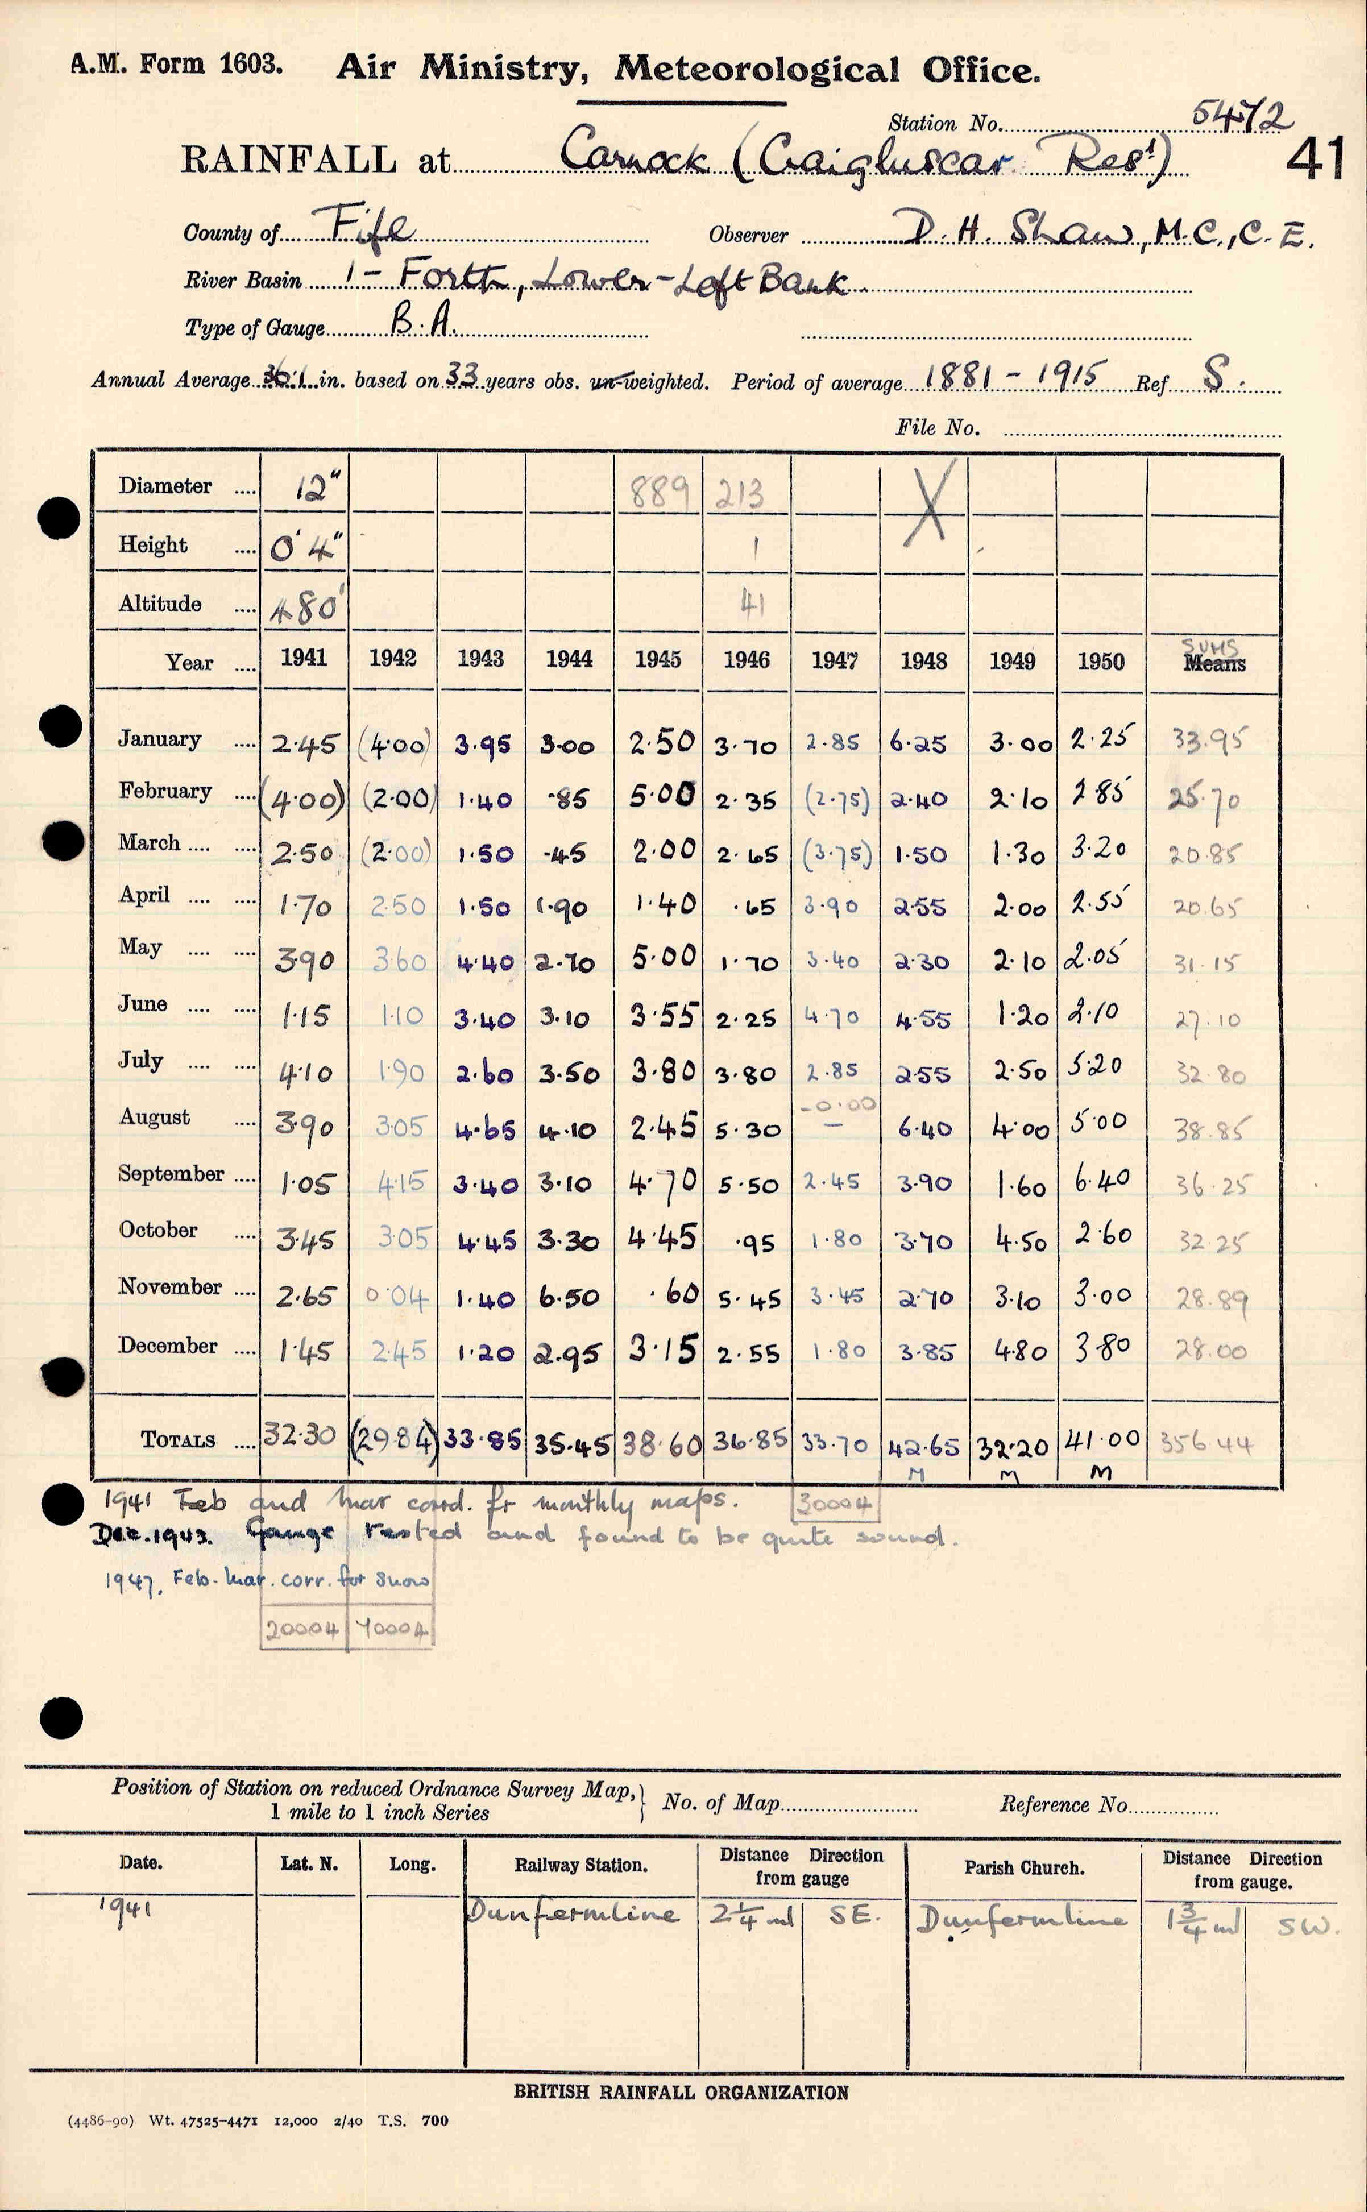 A.M. Form 1603. Air Ministry, Meteorological Office.
Station No. 5472
RAINFALL at Carnock (Craigluscar Resr) 41
County of Fife Observer D. H. Shaw, M.C., C.E.
River Basin 1 - Forth, Lower - Left Bank.
Type of Gauge B.A.
Annual Average 36.1 in. based on 33 years obs. un-weighted. Period of average 1881 - 1915 Ref S.
File No.
Diameter .... 12" 889 213 X
Height .... 0' 4" 1
Altitude .... 480' 41
SUMS
Year .... 1941 1942 1943 1944 1945 1946 1947 1948 1949 1950 Means
January .... 2.45 (4.00) 3.95 3.00 2.50 3.70 2.85 6.25 3.00 2.25 33.95
February .... (4.00) (2.00) 1.40 .85 5.00 2.35 (2.75) 2.40 2.10 2.85 25.70
March .... .... 2.50 (2.00) 1.50 .45 2.00 2.65 (3.75) 1.50 1.30 3.20 20.85
April .... .... 1.70 2.50 1.50 1.90 1.40 .65 3.90 2.55 2.00 2.55 20.65
May .... .... 3.90 3.60 4.40 2.70 5.00 1.70 3.40 2.30 2.10 2.05 31.15
June .... .... 1.15 1.10 3.40 3.10 3.55 2.25 4.70 4.55 1.20 2.10 27.10
July .... .... 4.10 1.90 2.60 3.50 3.80 3.80 2.85 2.55 2.50 5.20 32.80
-0.00
August .... 3.90 3.05 4.65 4.10 2.45 5.30 — 6.40 4.00 5.00 38.85
September .... 1.05 4.15 3.40 3.10 4.70 5.50 2.45 3.90 1.60 6.40 36.25
October .... 3.45 3.05 4.45 3.30 4.45 .95 1.80 3.70 4.50 2.60 32.25
November .... 2.65 0.04 1.40 6.50 .60 5.45 3.45 2.70 3.10 3.00 28.89
December .... 1.45 2.45 1.20 2.95 3.15 2.55 1.80 3.85 4.80 3.80 28.00
TOTALS .... 32.30 (29.84) 33.85 35.45 38.60 36.85 33.70 42.65 32.20 41.00 356.44
M M M
1941 Feb and Mar corrd. fr monthly maps. 30004
Dec. 1943. Gauge tested and found to be quite sound.
1947, Feb. Mar. corr. for snow
20004 70004
Position of Station on reduced Ordnance Survey Map, } No. of Map Reference No.
1 mile to 1 inch Series
Date. Lat. N. Long. Railway Station. Distance Direction from gauge Parish Church. Distance Direction from gauge.
1941 Dunfermline 2 1/4 ml SE. Dunfermline 1 3/4 ml SW.
BRITISH RAINFALL ORGANIZATION
(4486-90) Wt. 47525-4471 12,000 2/40 T.S. 700